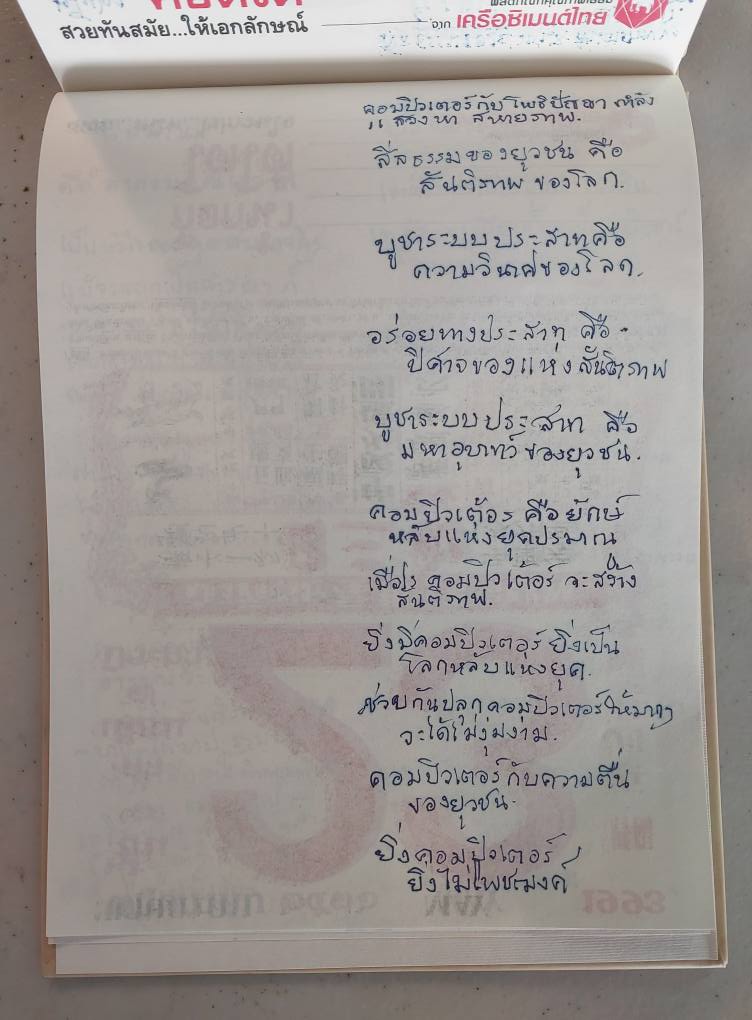 สวยทันสมัย...ให้เอกลักษณ์
จาก เครือซิเมนต์ไทย
คอมปิวเตอร์กับโพธิปัญญา กำลัง
แสวงหา สหายภาพ.
ศีลธรรมของยุวชน คือ
สันติภาพ ของโลก.
บูชาระบบประสาทคือ
ความวินาศของโลก.
อร่อยทางประสาท คือ
ปีศาจของแห่งสันติภาพ
บูชาระบบประสาท คือ
มหาอุบาทว์ของยุวชน.
คอมปิวเต้อร คือยักษ์
หลับแห่งยุคปรมาณู
เมื่อไร คอมปิวเต้อร์ จะสร้าง
สันติภาพ.
ยิ่งมีคอมปิวเตอร์ ยิ่งเป็น
โลกหลับแห่งยุค.
ช่วยกันปลุกคอมปิวเตอร์ให้มากๆ
จะได้ไม่งุ่มง่าม.
คอมปิวเตอร์ กับความตื่น
ของยุวชน.
ยิ่งคอมปิวเตอร์
ยิ่งไม่โพชฌงค์